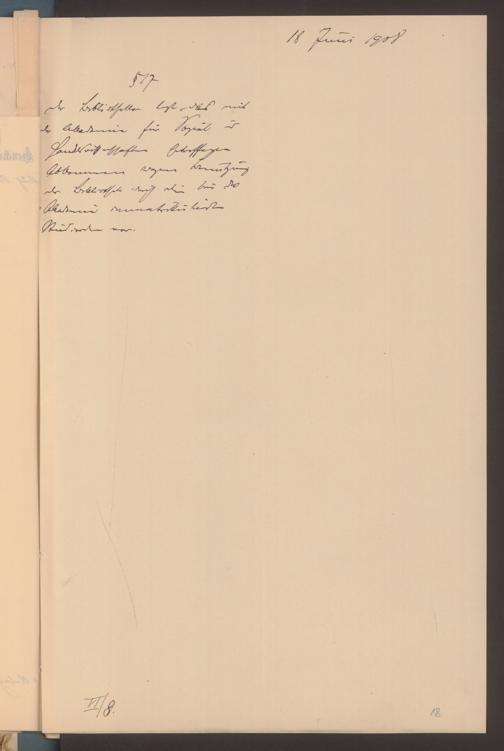 18 Juni 1908
§17
der Bibliothekar legt das mit
der Akademie für Sozial u
Handelswissenschaften
Abkommen wegen Benutzung
der Bibliothek durch die bei der
Akademie immatrikulierten
Studierenden vor.
VI/8.
18